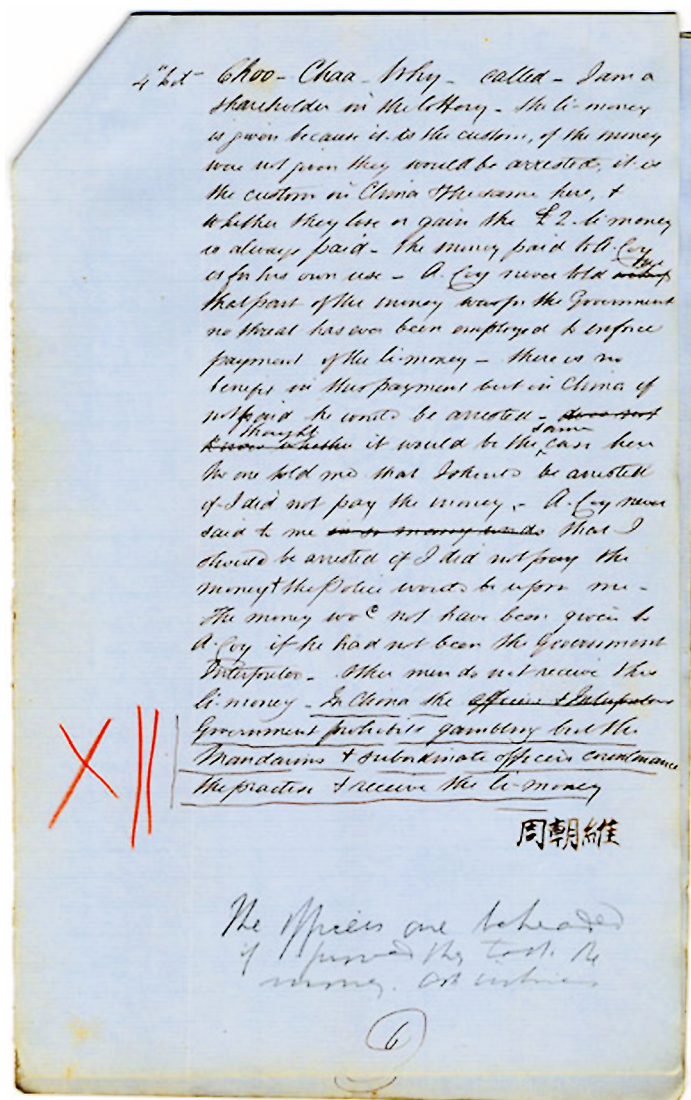 4th wit Choo-Chaa-Why - called - I am a
shareholder in the lottery - the li-money
is given because it is the custom, if the money
were not given they would be arrested, it is
the custom in China & the same here, &
whether they lose or gain the £2 li-money
is always paid - the money paid to A. Coy
is for his own use - A. Coy never told me
that part of the money was for the Government
no threat has ever been employed to enforce
payment of the li-money - there is no
benefit in this payment but in China if
not paid he would be arrested - does not
know whether thought it would be the same case here
No one told me that I should be arrested
if I did not pay the money - A. Coy never
said to me in so many words that I
should be arrested if I did not pay the
money & the Police would be upon me -
The money wod not have been given to
A. Coy if he had not been the Government
Interpreter - Other men do not receive this
li-money - In China the officers & Interpreters
Government prohibits gambling but the
Mandarins & subordinate officers countenance
the practice & receive the li-money
XII
周朝維
The Officers are beheaded
if proved they took the
money.
6